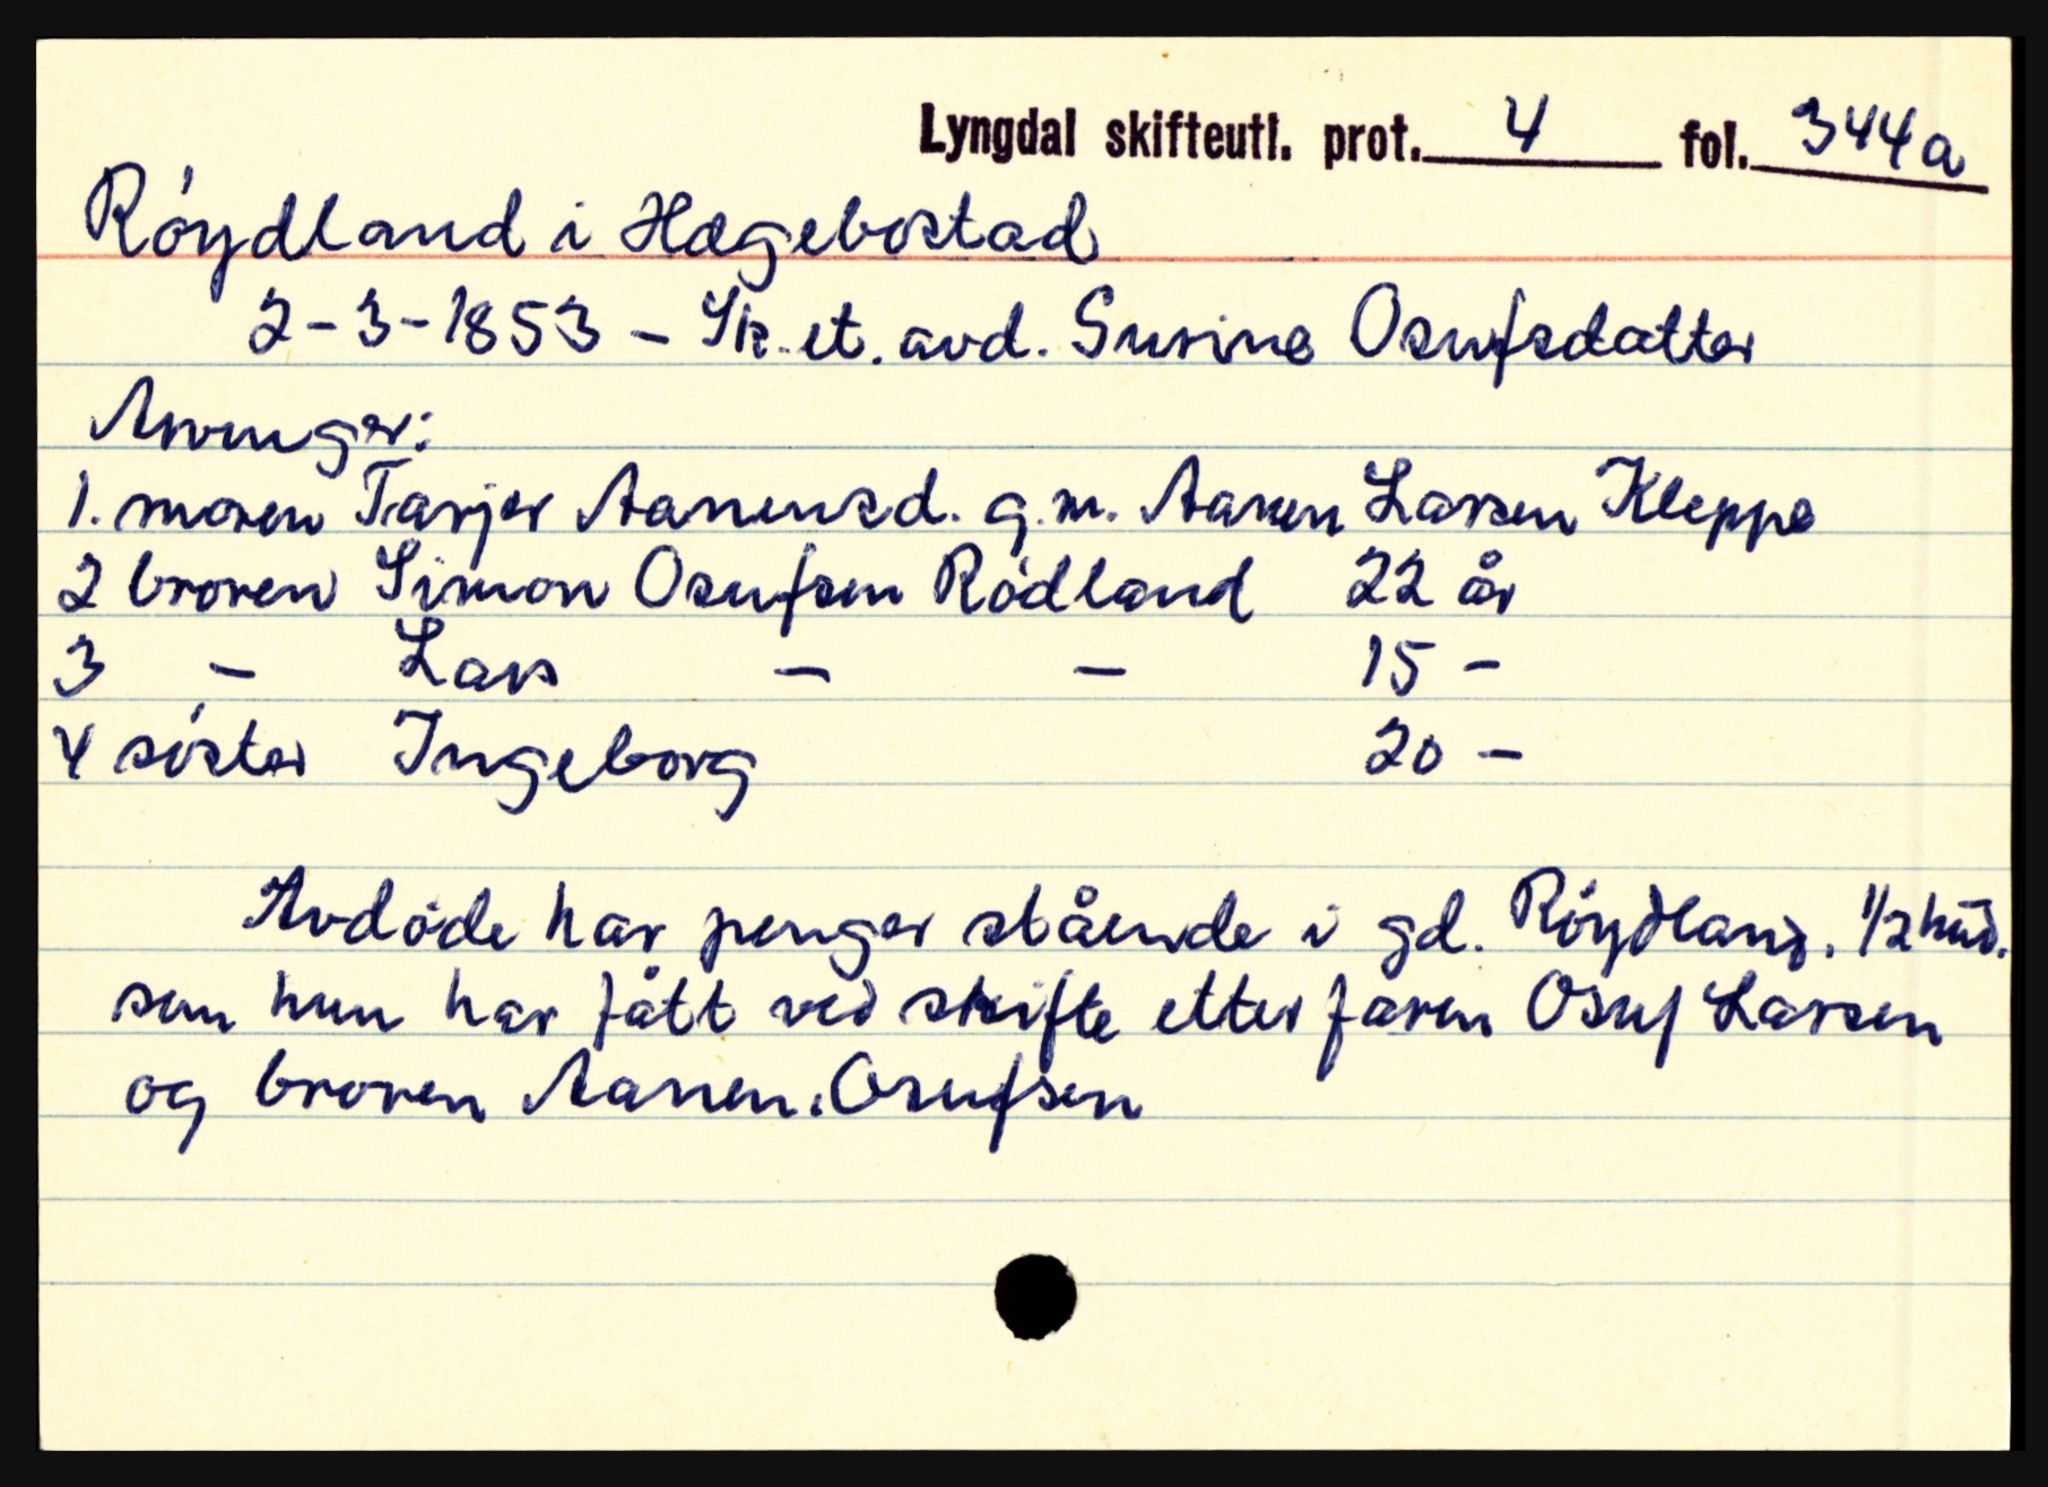 Lyngdal skifteutl. prot. 4 fol. 344a
Röydland i Hægebostad
2-3-1853 - Sk. et. avd. Susine Osufsdatter
Arvinger:
1. moren Tarjer Aanensd. g.m. Aanen Larsen Kleppe
2 broren Simon Osufsen Rödland 22 år
3 - Lars - - 15 -
4 söster Ingeborg 20 -
Avdöde har penger stående i gd. Röydland. 1/2 hud.
som hun har fått ved skifte etter faren Osuf Larsen
og broren Aanen Osufsen